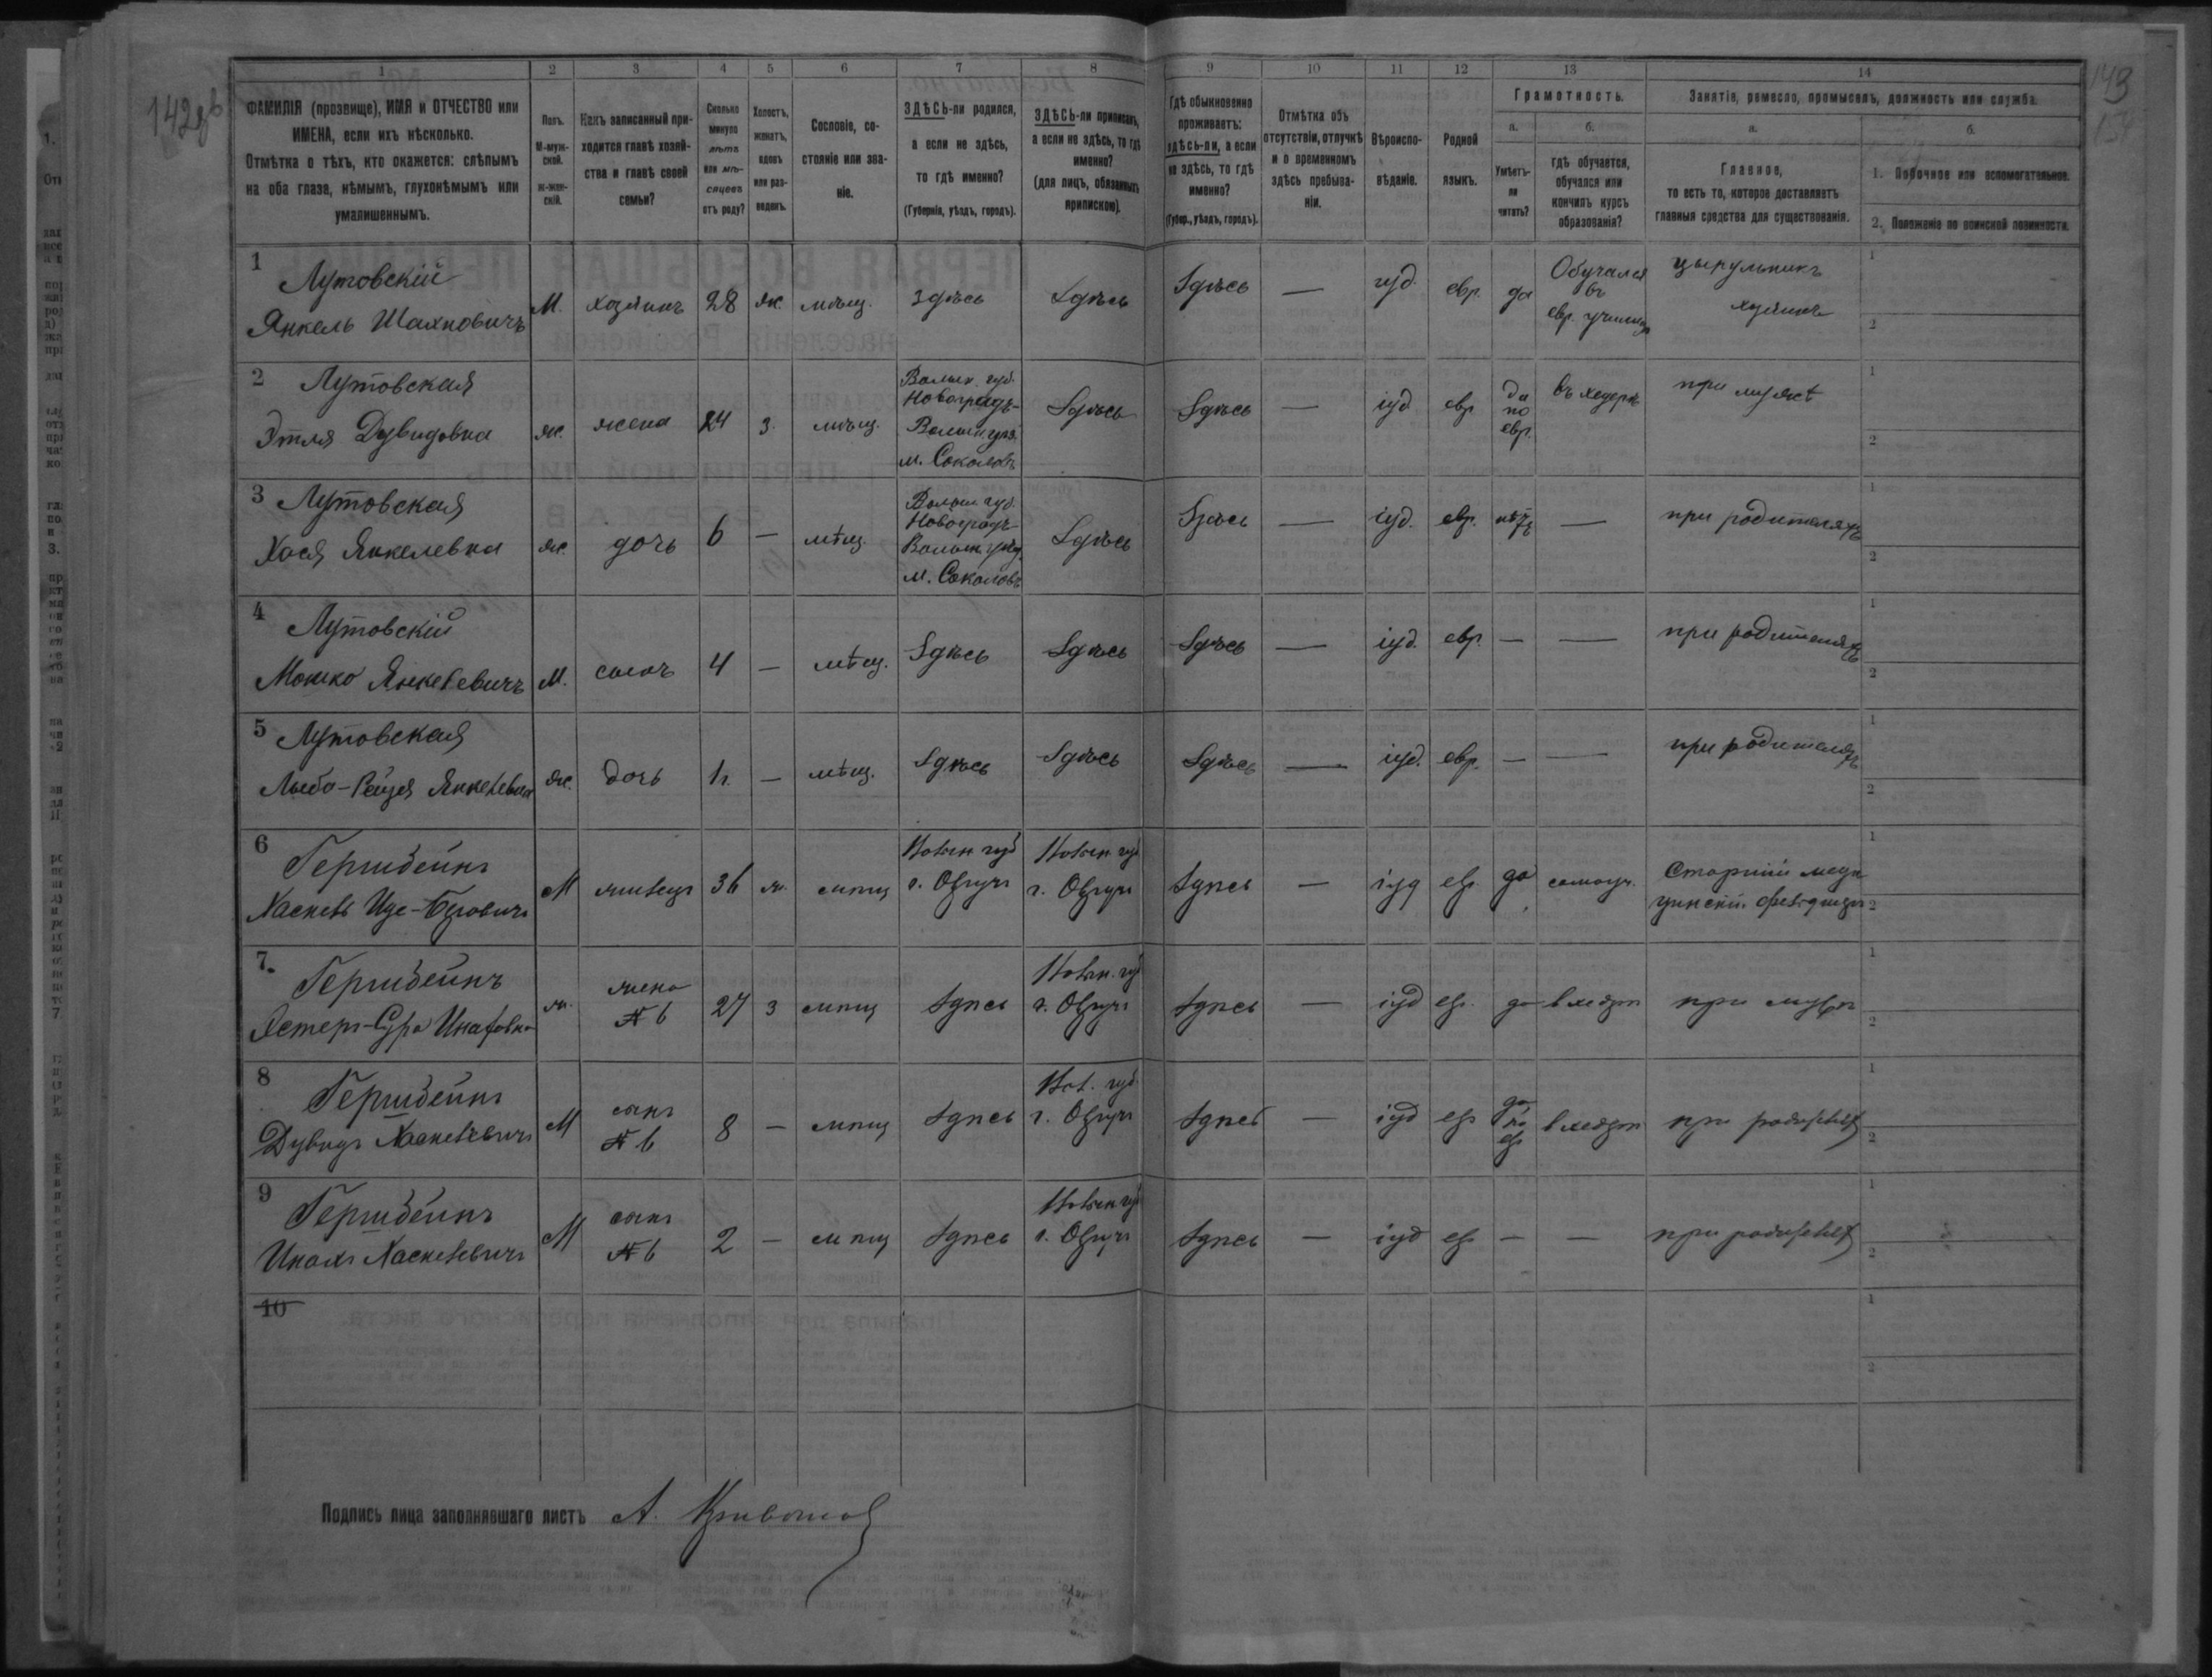 142об
143
154
1
2
3
4
5
6
7
8
9
10
11
12
13
14
ФАМИЛІЯ (прозвище), ИМЯ и ОТЧЕСТВО или
ИМЕНА, если ихъ нѣсколько.
Отмѣтка о тѣхъ, кто окажется: слѣпымъ
на оба глаза, нѣмымъ, глухонѣмымъ или
умалишеннымъ.
Полъ.
М-муж-
ской.
Ж-жен-
скій.
Какъ записанный при-
ходится главѣ хозяй-
ства и главѣ своей
семьи?
Сколько
минуло
лѣтъ
или мѣ-
сяцевъ
отъ роду?
Холостъ,
женатъ,
вдовъ
или раз-
веденъ.
Сословіе, со-
стояніе или зва-
ніе.
ЗДѢСЬ-ли родился,
а если не здѣсь,
то гдѣ именно?
(Губернія, уѣздъ, городъ).
ЗДѢСЬ-ли приписанъ,
а если не здѣсь, то гдѣ
именно?
(для лицъ, обязанныхъ
припискою).
Гдѣ обыкновенно
проживаетъ:
здѣсь-ли, а если
не здѣсь, то гдѣ
именно?
(Губер., уѣздъ, городъ).
Отмѣтка объ
отсутствіи, отлучкѣ
и о временномъ
здѣсь пребыва-
ніи.
Вѣроиспо-
вѣданіе.
Родной
языкъ.
Грамотность.
а.
Умѣетъ-
ли
читать?
б.
гдѣ обучается,
обучался или
кончилъ курсъ
образованія?
Занятіе, ремесло, промыселъ, должность или служба.
а.
Главное,
то есть то, которое доставляетъ
главныя средства для существованія.
б.
1. Побочное или вспомогательное.
2. Положеніе по воинской повинности.
1
Лутовскій
Янкель Шахновичъ
М. хозяинъ 28 ж. мѣщ. здѣсь Здѣсь Здѣсь — іуд. евр. да
Обучался
въ
евр. училищѣ
цырульникъ
хозяинъ
1
2
2 Лутовская
Этля Дувидовна
ж. жена 24 з. мѣщ.
Волын. губ.
Новоградъ-
Волын. уѣз.
м. Соколовъ
Здѣсь Здѣсь — іуд евр
да
по
евр.
въ хедерѣ
при мужѣ
1
2
3 Лутовская
Хася Янкелевна
ж. дочь 6 — мѣщ.
Волын. губ.
Новоградъ-
Волын. уѣзд.
м. Соколовъ
Здѣсь Здѣсь — іуд. евр. нѣтъ — при родителяхъ
1
2
4
Лутовскій
Мошко Янкелевичъ
М. сынъ 4 — мѣщ. Здѣсь Здѣсь Здѣсь — іуд. евр. — — при родителяхъ
1
2
5 Лутовская
Янкелевна
ж. дочь — мѣщ. Здѣсь Здѣсь Здѣсь — іуд. евр. — — при родителяхъ
1
2
6
М 36 ж. мѣщ
Волын губ
г. Овручъ
Волын губ
г. Овручъ
Здѣсь — іуд евр да самоуч.
Старшій меди
цинскій фельдшеръ
1
2
7.
ж.
жена
№ 6
27 з мѣщ Здѣсь
Волын. губ
г. Овручъ
Здѣсь — іуд евр. да в хедерѣ при мужѣ
1
2
8
Дувидъ
М
сынъ
№ 6
8 — мѣщ Здѣсь
Вол. губ.
г. Овручъ
Здѣсь — іуд евр
да
по
евр
в хедерѣ при родителях
1
2
9
М
сынъ
№ 6
2 — мѣщ Здѣсь
Волын губ
г. Овручъ
Здѣсь — іуд евр — — при родителях
1
2
10
1
2
Подпись лица заполнявшаго листъ А.